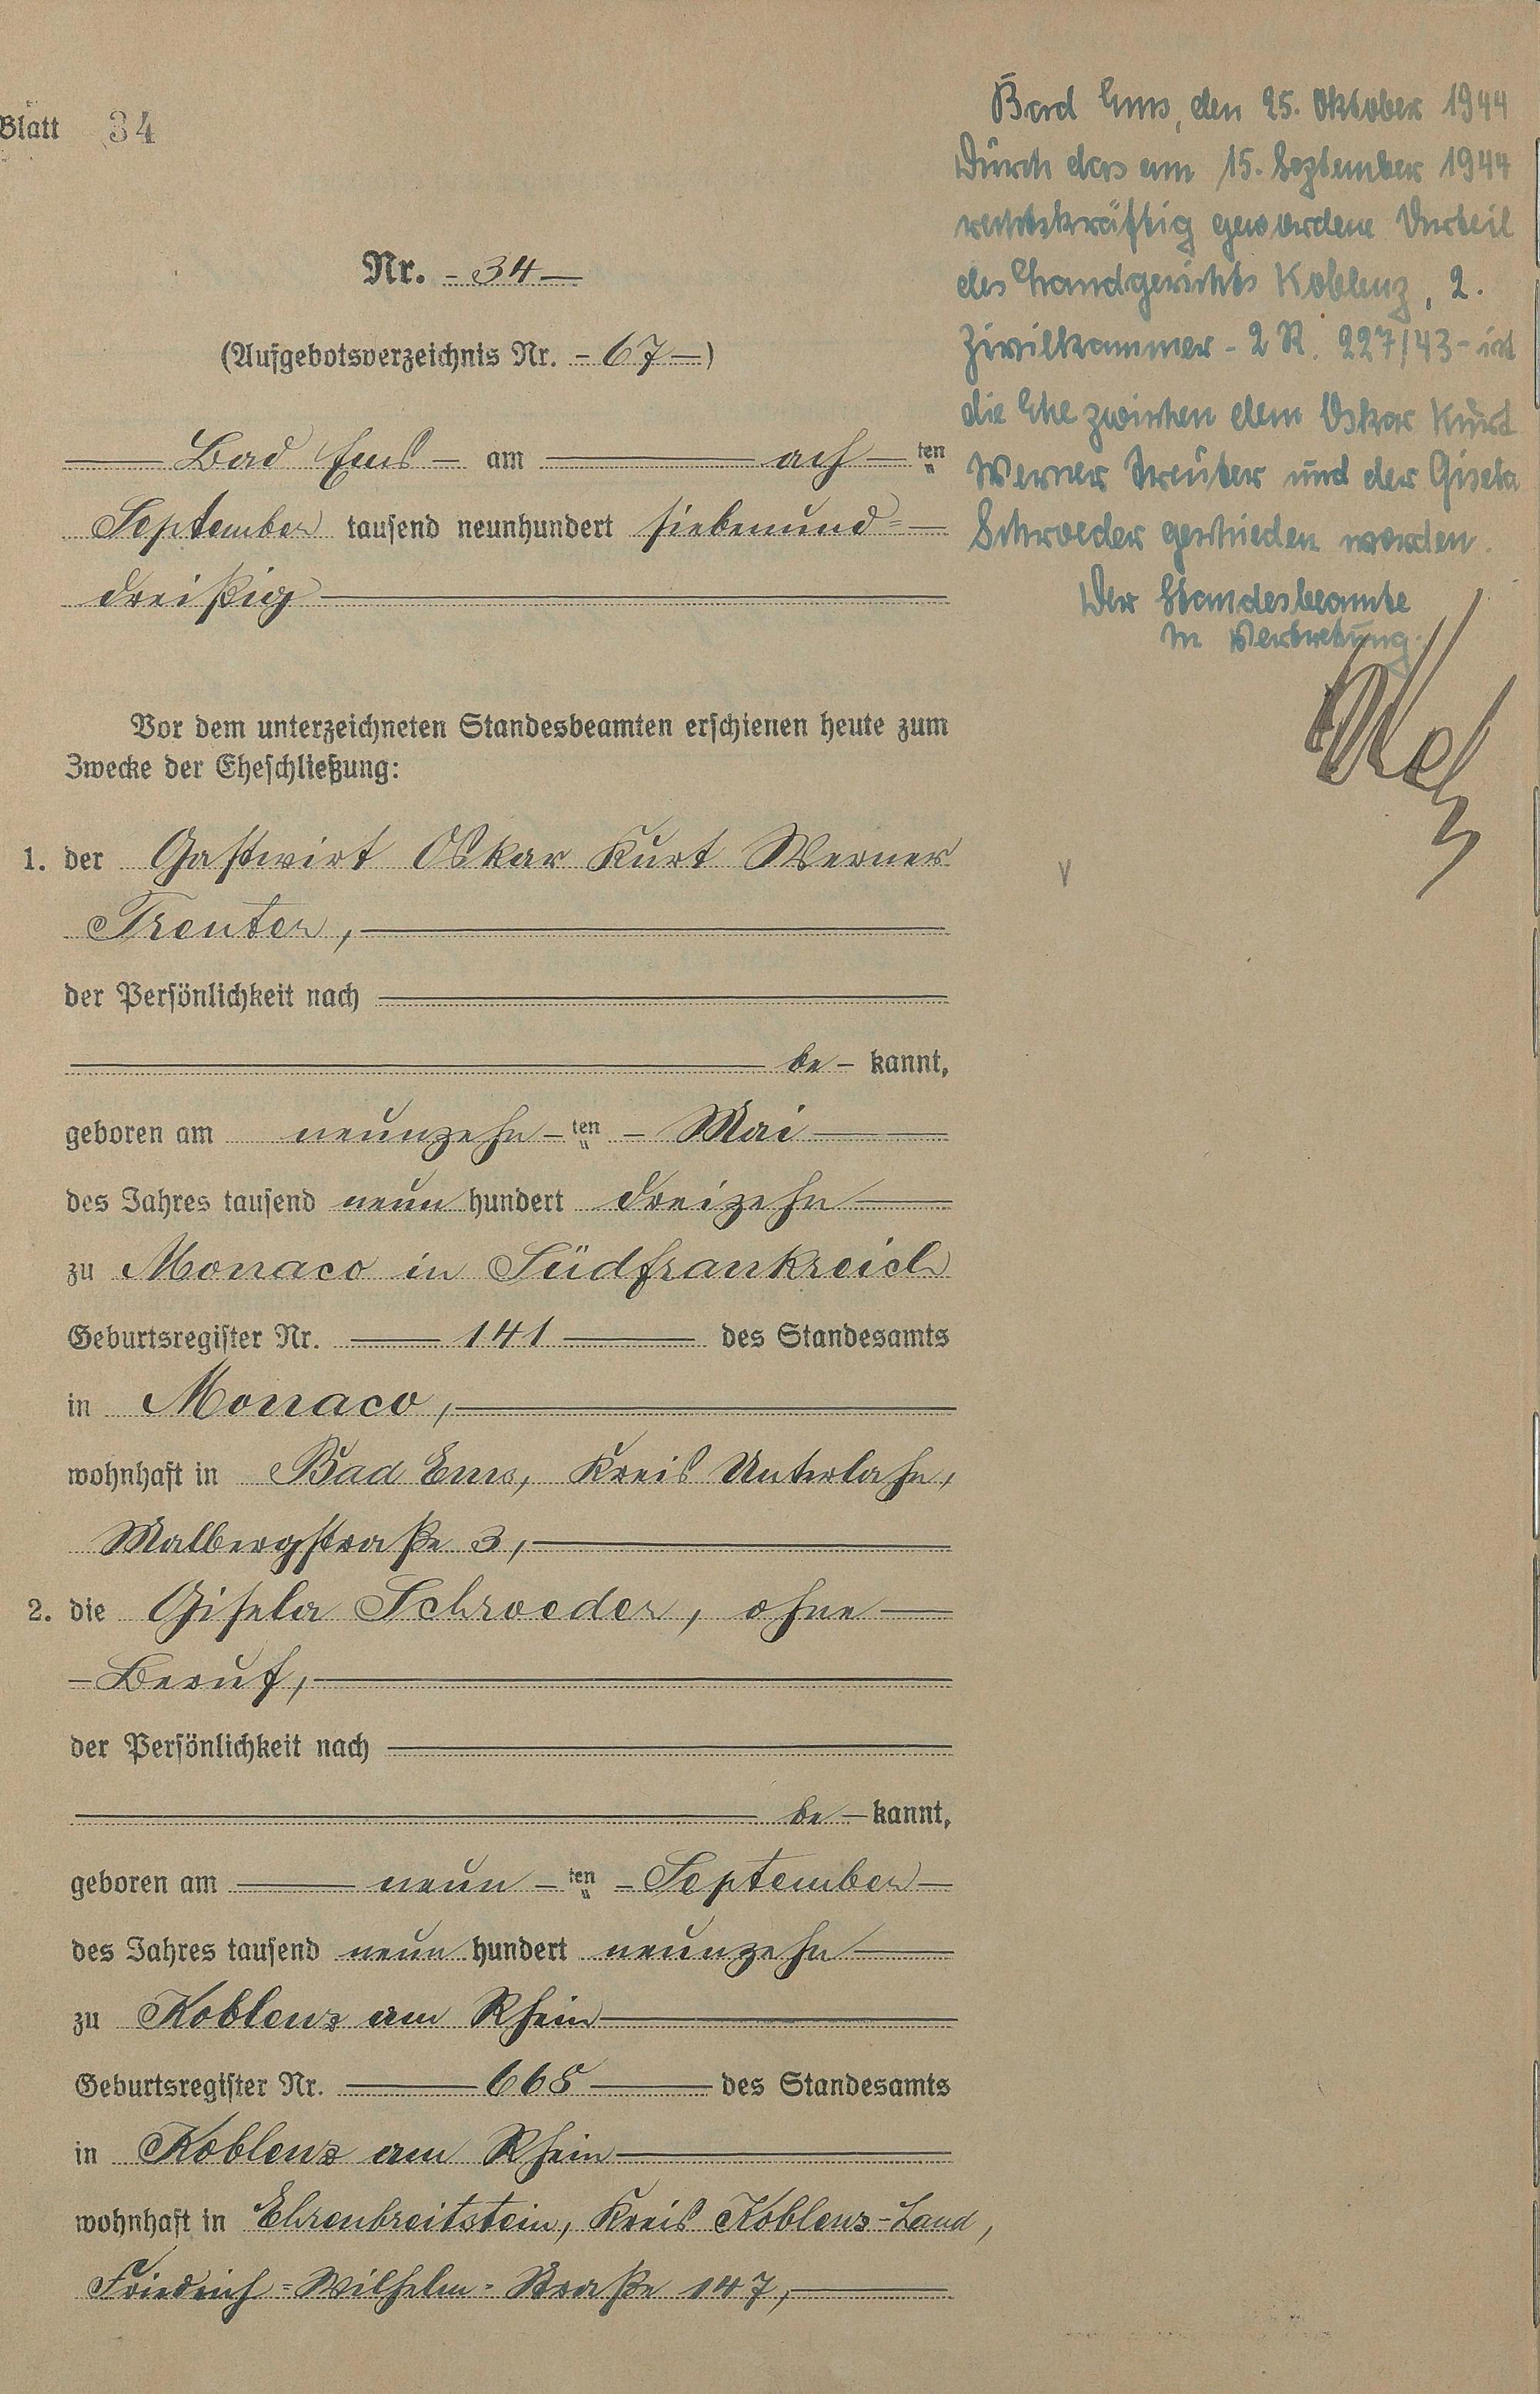 Blatt 34
Nr. - 34 -
(Aufgebotsverzeichnis Nr. - 67 -)
Bad Ems - am ach - ten
September tausend neunhundert siebenund=
dreißig
Vor dem unterzeichneten Standesbeamten erschienen heute zum
Zwecke der Eheschließung:
1. der Gastwirt Oskar Kurt Werner
Treuter,
der Persönlichkeit nach
be - kannt,
geboren am neunzehn - ten - Mai
des Jahres tausend neun hundert dreizehn
zu Monaco in Südfrankreich
Geburtsregister Nr. 141 des Standesamts
in Monaco,
wohnhaft in Bad Ems, Kreis Unterlahn,
Malbergstraße 3,
2. die Gisela Schroeder, ohne
- Beruf,
der Persönlichkeit nach
be - kannt,
geboren am neun - ten - September
des Jahres tausend neun hundert neunzehn
zu Koblenz am Rhein
Geburtsregister Nr. 668 des Standesamts
in Koblenz am Rhein
wohnhaft in Ehrenbreitstein, Kreis Koblenz-Land,
Friedrich=Wilhelm=Straße 147,
Bad Ems, den 25. Oktober 1944
Durch das am 15. September 1944
rechtskräftig gewordene Urteil
des Landgerichts Koblenz, 2.
Zivilkammer - 2 R. 227/43 - ist
die Ehe zwischen dem Oskar Kurt
Werner Treuter und der Gisela
Schroeder geschieden worden.
Der Standesbeamte
In Vertretung.